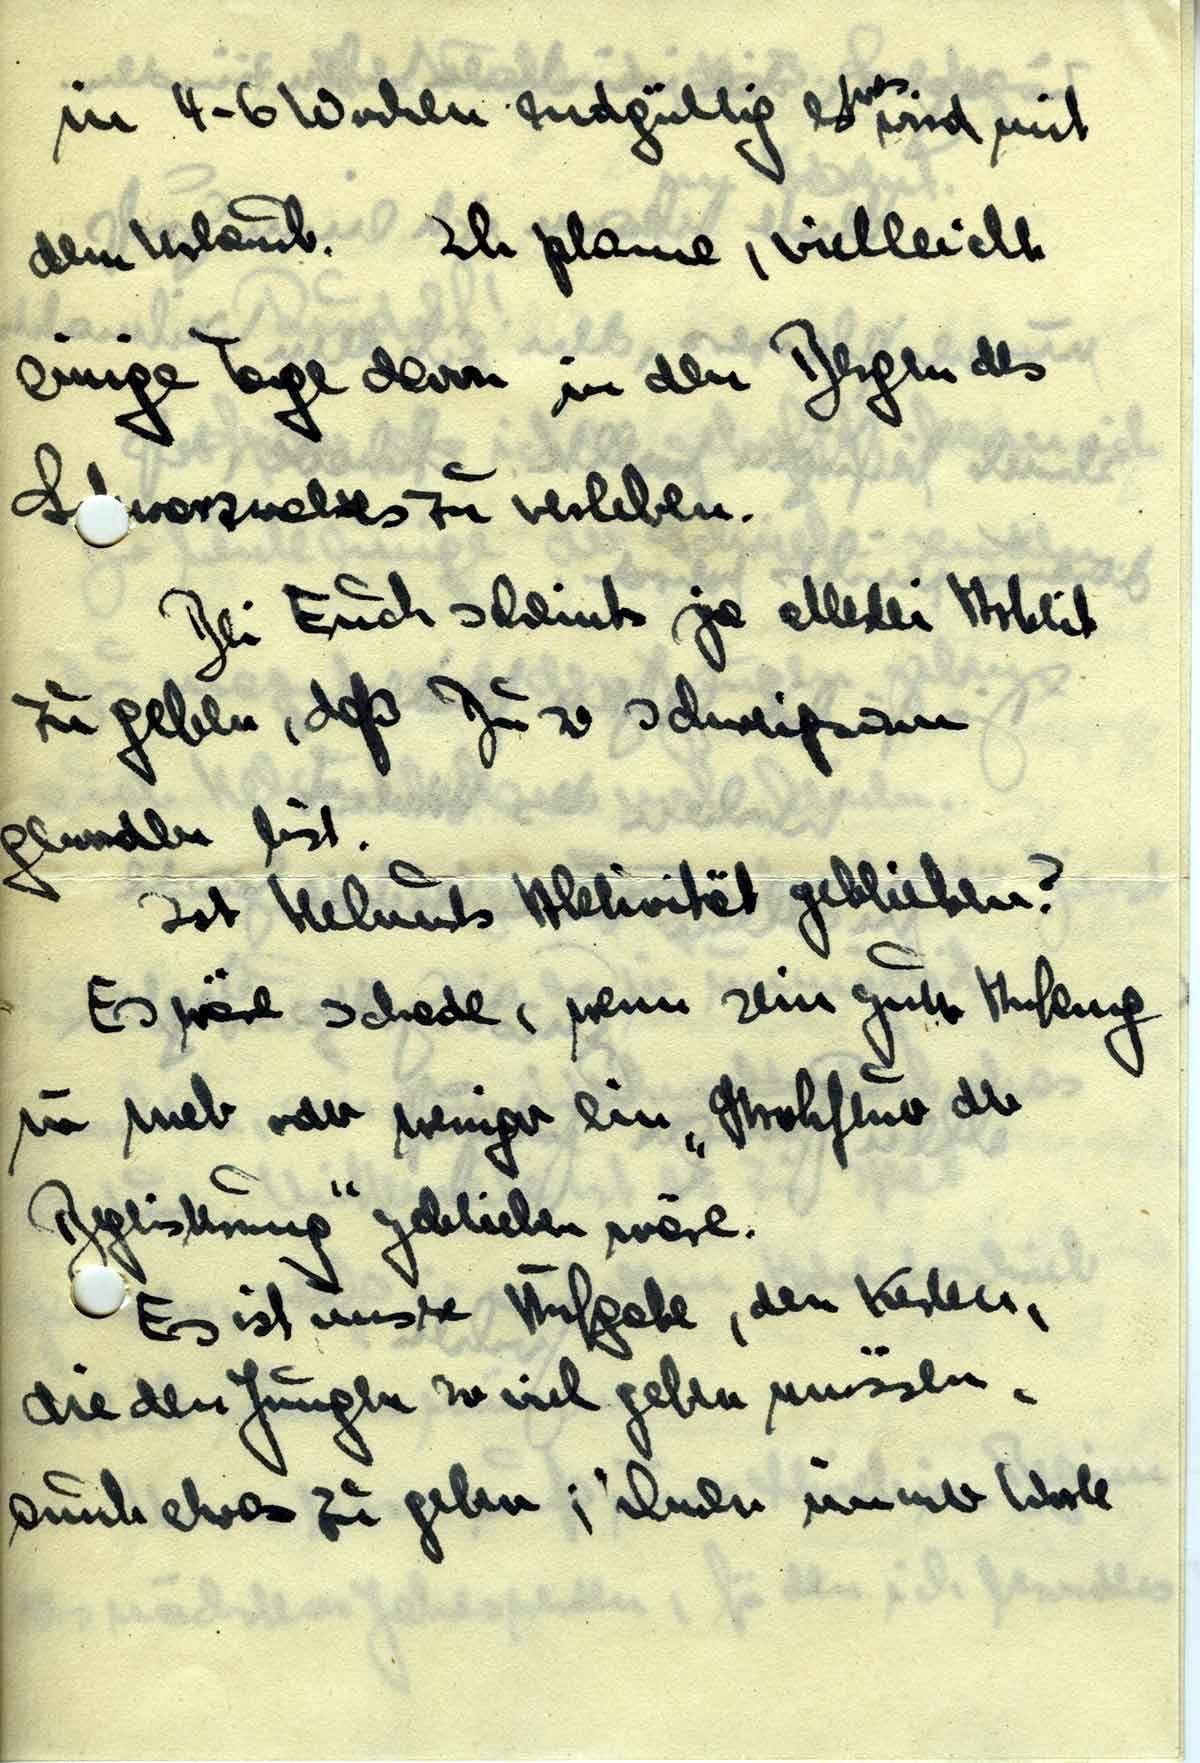 in 4-6 Wochen endgültig es was wird mit
dem Urlaub. Ich plane, vielleicht
einige Tage davon in den Bergen des
Schwarzwaldes zu verleben.
Bei Euch scheints ja allerlei Arbeit
zu geben, daß Du so schweigsam
geworden bist.
Ist Helmuts Aktivität geblieben?
Es wäre schade, wenn sein guter Anfang
nur mehr oder weniger ein „Strohfeuer der
Begeisterung" geblieben wäre.
Es ist unsre Aufgabe, den Kerlen,
die den Jungen so viel geben müssen,
auch etwas zu geben; ihnen immer Worte